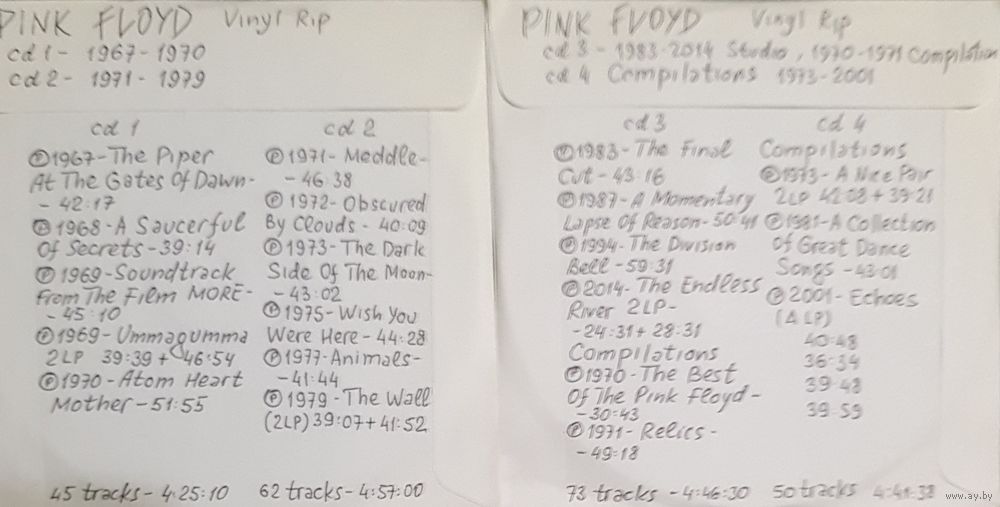 PINK FLOYD Vinyl Rip
cd 1 - 1967-1970
cd 2 - 1971-1979
cd 1
Ⓟ1967-The Piper
At The Gates Of Dawn-
- 42:17
Ⓟ1968-A Saucerful
Of Secrets-39:14
Ⓟ1969-Soundtrack
From The Film MORE-
- 45:10
Ⓟ1969-Ummagumma
2LP 39:39 + 46:54
Ⓟ1970-Atom Heart
Mother-51:55
45 tracks - 4:25:10
cd 2
Ⓟ1971-Meddle-
- 46:38
Ⓟ1972-Obscured
By Clouds - 40:09
Ⓟ1973-The Dark
Side Of The Moon-
- 43:02
Ⓟ1975-Wish You
Were Here-44:28
Ⓟ1977-Animals-
- 41:44
Ⓟ1979-The Wall
(2LP) 39:07+41:52
62 tracks-4:57:00
PINK FLOYD Vinyl Rip
cd 3 - 1983-2014 Studio, 1970-1971 Compilation
cd 4 Compilations 1973-2001
cd 3
Ⓟ1983-The Final
Cut-43:16
Ⓟ1987-A Momentary
Lapse Of Reason-50:41
Ⓟ1994-The Division
Bell-59:31
Ⓟ2014-The Endless
River 2LP-
-24:31+28:31
Compilations
Ⓟ1970-The Best
Of The Pink Floyd-
-30:43
Ⓟ1971-Relics-
-49:18
73 tracks - 4:46:30
cd 4
Compilations
Ⓟ1973-A Nice Pair
2LP 42:08+39:21
Ⓟ1981-A Collection
Of Great Dance
Songs -43:01
Ⓟ2001-Echoes
(4LP)
40:48
36:34
39:48
39:59
50 tracks 4:41:38
www.ay.by